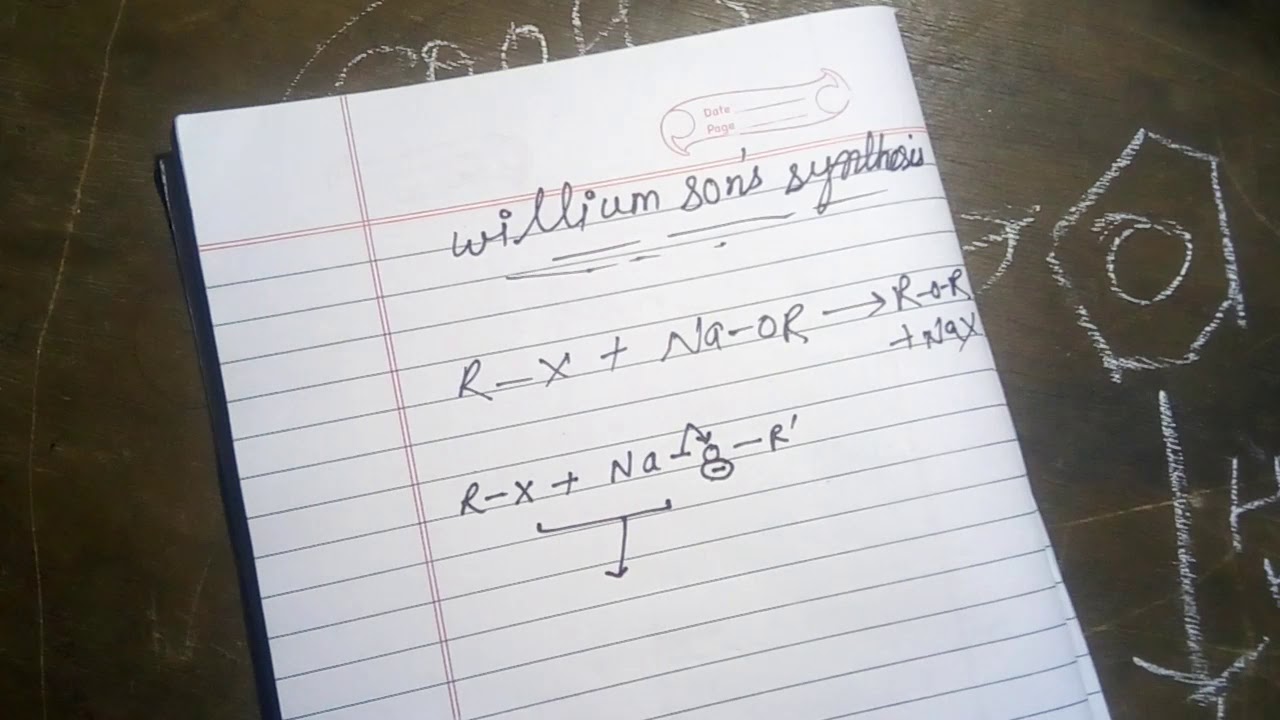 COOH
Date
Page
willium son's synthesis
R-X + Na-OR → R-O-R
+ NaX
R-X + Na - O - R'
⊖